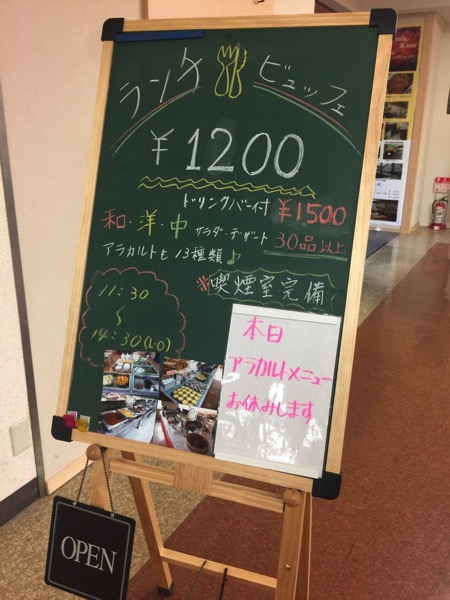 ランチ ビュッフェ
￥1200
ドリンクバー付 ￥1500
和・洋・中 サラダ・デザート 30品以上
アラカルトも13種類♪
※喫煙室完備
11:30
〜
14:30(L.O)
本日
アラカルトメニュー
お休みします
OPEN